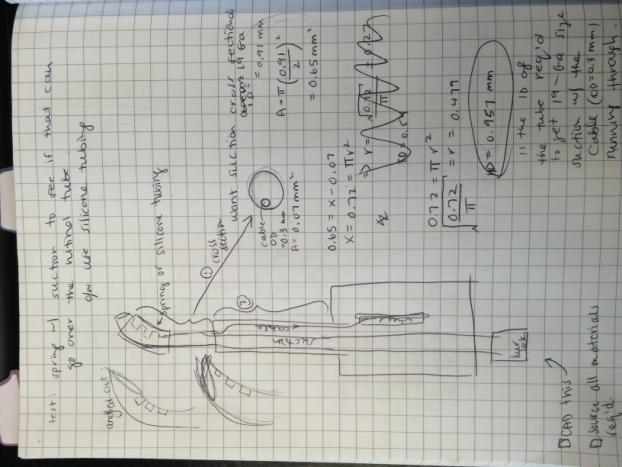 test: spring w/ suction to see if that can
go over the nitinol tube.
o/w use silicone tubing
angled cut.
spring or silicone tubing
① cross
section
②
cable
suction
luer lock
want suction cross sectional
19 Ga
ID = 0.91 mm
A = π(0.91/2)²
= 0.65 mm²
cable
OD
=0.3 mm
A = 0.07 mm²
0.65 = x - 0.07
x = 0.72 = πr²
0.72 = πr²
√(0.72/π) = r = 0.479
ID = 0.957 mm
is the ID of
the tube req'd
to get 19-Ga size
suction w/ the
cable (OD=0.3mm)
running through.
□ CAD this
□ source all materials
req'd